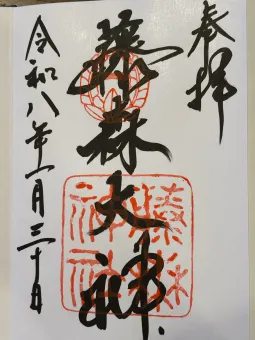 奉拝
藤森大神
令和八年一月三十日
藤森神社